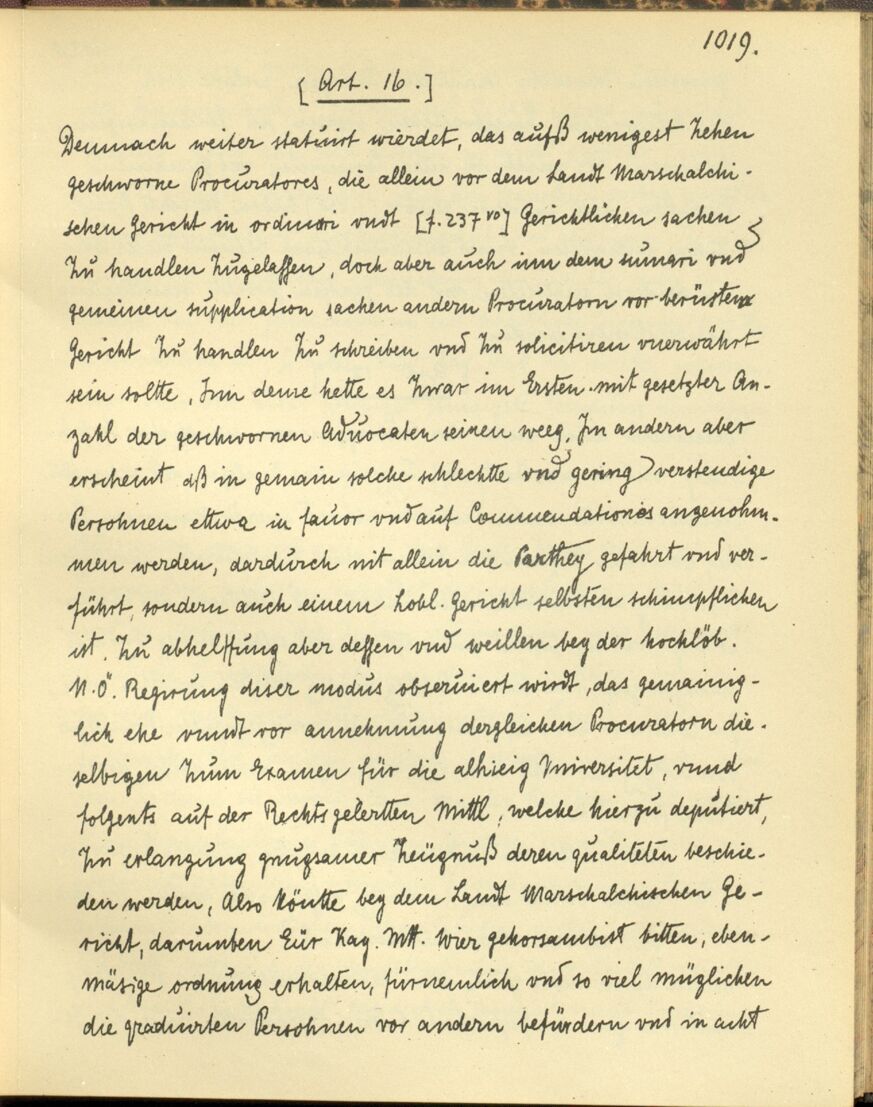 1019.
[Art. 16.]
Demnach weiter statuirt wierdet, das aufß wenigest zehen
geschworne Procuratores, die allein vor dem Landt Marschalchi-
schen Gericht in ordinari vndt [f. 237 vo] Gerichtlichen sachen
zu handlen zugelassen, doch aber auch inn dem sumari vnd
gemeinen supplication sachen andern Procuratorn vor berüsten
Gericht zu handlen zu schreiben vnd zu solicitiren vnerwährt
sein sollte, Inn deme hette es zwar im Ersten mit gesetzter An-
zahl der geschwornen Aduocaten seinen weeg, Im andern aber
erscheint dß in gemain solche schlechtte vnd gering verstendige
Persohnen ettwa in fauor vnd auf Commendationes angenohm-
men werden, dardurch nit allein die Parthey gefahrt vnd ver-
führt, sondern auch einem Lobl. Gericht selbsten schimpflichen
ist. Zu abhelffung aber dessen vnd weillen bey der hochlöb.
N.Ö. Regirung diser modus obseruiert wirdt, das gemainig-
lich ehe vnndt vor annehmung dergleichen Procuratorn die-
selbigen zum Examen für die alhieig Vniversitet, vnnd
folgents auf der Rechtsgelertten Mittl, welche hierzu deputiert,
zu erlangung gnugsamer Zeügnuß deren qualiteten beschie-
den werden, Also köntte bey dem Landt Marschalchischen Ge-
richt, darumben Eür Kay. Mtt. wier gehorsambist bitten, eben-
mäsige ordnung erhalten, fürnemlich vnd so viel müglichen
die graduirten Persohnen vor andern befürdern vnd in acht